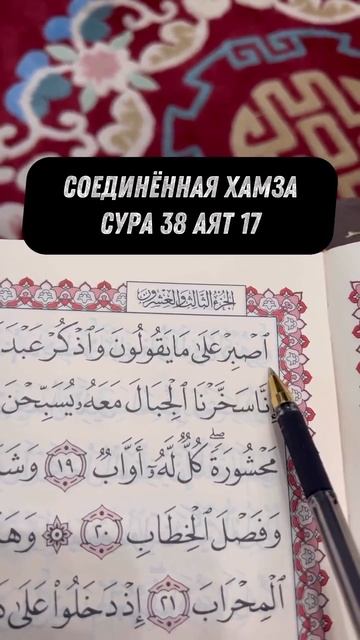 СОЕДИНЁННАЯ ХАМЗА
СУРА 38 АЯТ 17
الجزء الثالث والعشرون
ٱصۡبِرۡ عَلَىٰ مَا يَقُولُونَ وَٱذۡكُرۡ عَبۡدَ
إِنَّا سَخَّرۡنَا ٱلۡجِبَالَ مَعَهُۥ يُسَبِّحۡنَ
مَحۡشُورَةٗۖ كُلّٞ لَّهُۥٓ أَوَّابٞ ١٩ وَشَ
وَفَصۡلَ ٱلۡخِطَابِ ٢٠ وَهَ
ٱلۡمِحۡرَابَ ٢١ إِذۡ دَخَلُواْ عَلَىٰ